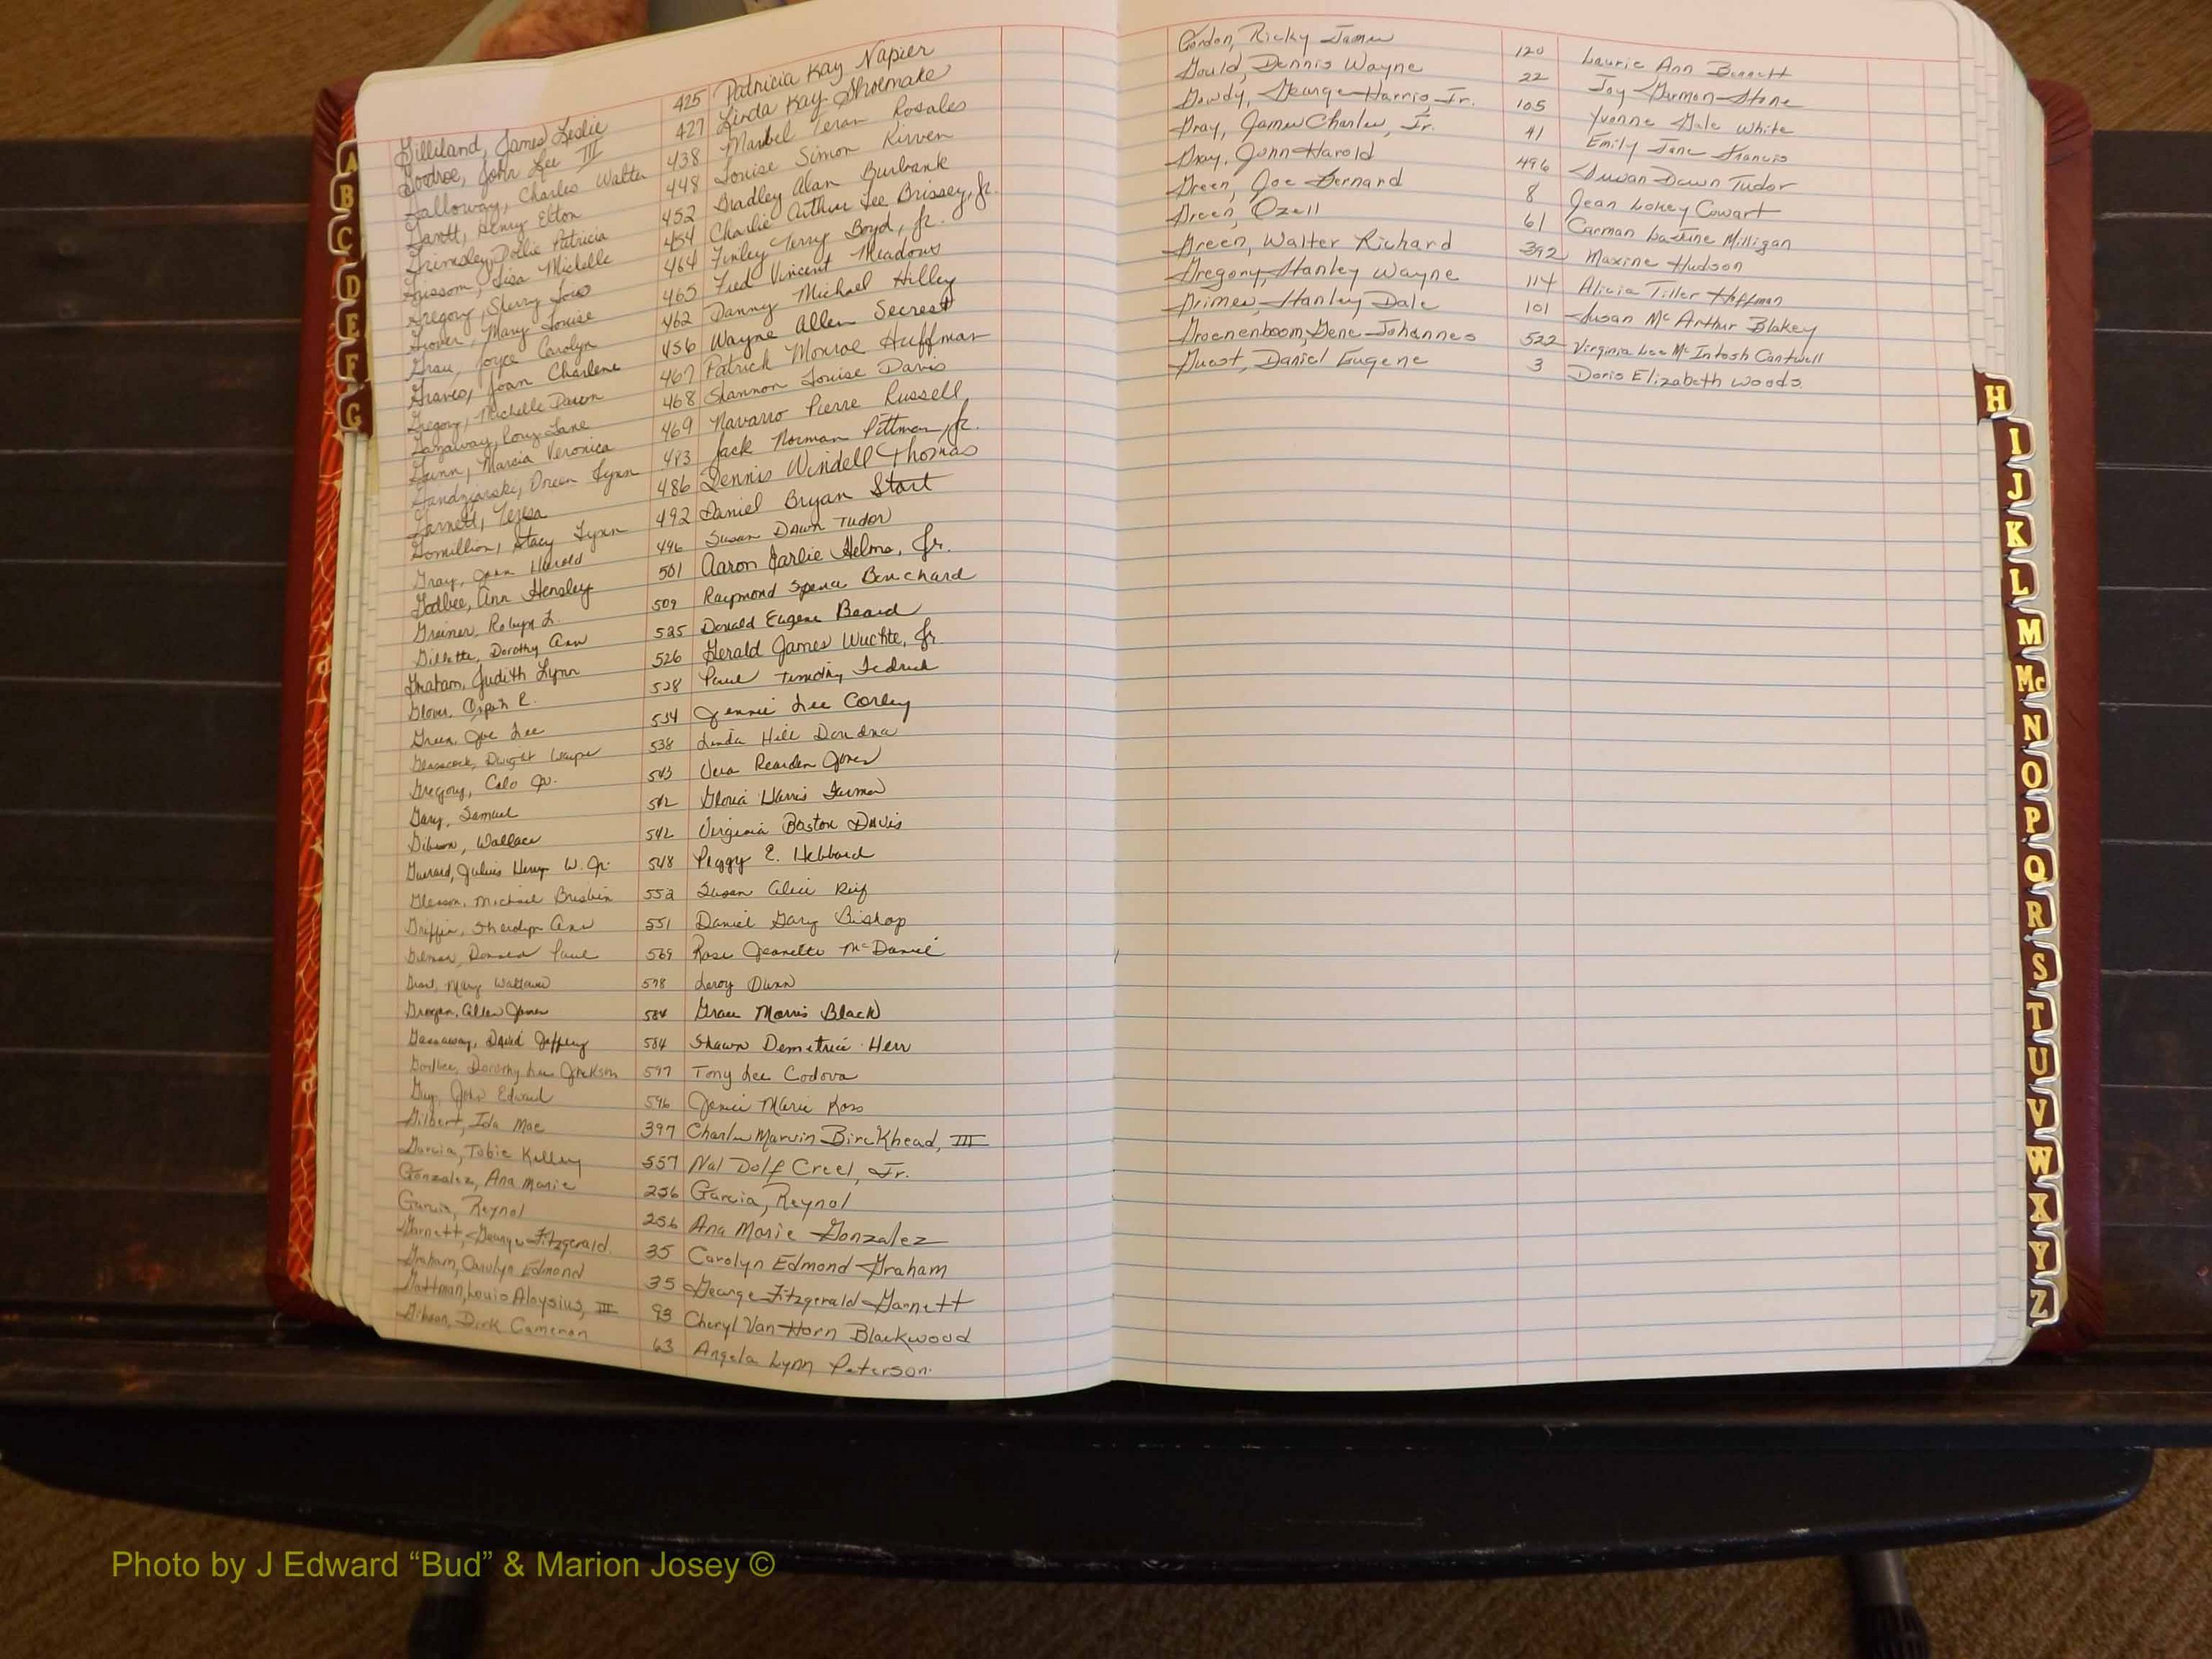 Gilliland, James Leslie 425 Patricia Kay Napier
Goodroe, John Lee III 427 Linda Kay Shoemake
Galloway, Charles Walter 438 Maribel Teran Rosales
Gantt, Henry Elton 448 Louise Simon Kirven
Grimsley, Dollie Patricia 452 Bradley Alan Burbank
Grissom, Lisa Michelle 454 Charlie Arthur Lee Brissey, Jr.
Gregory, Sherry 464 Finley Terry Boyd, Jr.
Grover, Mary Louise 465 Fred Vincent Meadows
Grau, Joyce Carolyn 462 Danny Michael Hilley
Graves, Joan Charlene 456 Wayne Allen Secrest
Gregory, Michelle Dawn 467 Patrick Monroe Huffman
Gazaway, Rory Lane 468 Shannon Louise Davis
Gunn, Marcia Veronica 469 Navarro Pierre Russell
Gandziarski, Doreen Lynn 483 Jack Norman Pittman, Jr.
Garnett, Teresa 486 Dennis Windell Thomas
Gomillion, Stacy Lynn 492 Daniel Bryan Start
Gray, John Harold 496 Susan Dawn Tudor
Godbee, Ann Hensley 501 Aaron Jarlie Helms, Jr.
Greiner, Robyn L. 509 Raymond Spence Bouchard
Gillette, Dorothy Ann 525 Donald Eugene Beard
Graham, Judith Lynn 526 Gerald James Wuchte, Jr.
Glover, Orpah R. 528 Paul Timothy Fedrick
Green, Joe Lee 534 Jennie Lee Corley
Glasscock, Dwight Wayne 538 Linda Hill Dondna
Gregory, Calo Jr. 543 Vera Rearden Jones
Gary, Samuel 542 Gloria Harris Furman
Gibson, Wallace 542 Virginia Boston Davis
Garrard, Julius Henry W. Jr. 548 Peggy E. Hebbard
Gleason, Michael Brisbin 552 Susan Alice Reif
Griffin, Sherolyn Ann 551 Daniel Gary Bishop
Gilmer, Donald Paul 569 Rose Jeanette McDaniel
Mary 578 Leroy Dunn
Grogan, Allen James 584 Grace Morris Black
Gassaway, David Jeffery 584 Shawn Demetrice Herr
Godbee, Dorothy Lee Jackson 597 Tony Lee Codova
Guy, John Edward 596 Janice Marie Koss
Gilbert, Ida Mae 397 Charles Marvin Birckhead, III
Garcia, Tobie Kelley 557 Nal Dolf Creel, Jr.
Gonzalez, Ana Marie 256 Garcia, Reynol
Garcia, Reynol 256 Ana Marie Gonzalez
Garnett, George Fitzgerald 35 Carolyn Edmond Graham
Graham, Carolyn Edmond 35 George Fitzgerald Garnett
Guttman, Louis Aloysius, III 93 Cheryl Van Horn Blackwood
Gibson, Dirk Cameron 63 Angela Lynn Peterson
Gordon, Ricky James 120 Laurie Ann Bennett
Gould, Dennis Wayne 22 Joy Garmon Stone
Gowdy, George Harris, Jr. 105 Yvonne Gale White
Gray, James Charles, Jr. 41 Emily Jane Francis
Gray, John Harold 496 Susan Dawn Tudor
Green, Joe Bernard 8 Jean Lokey Cowart
Green, Ozell 61 Carman Milligan
Green, Walter Richard 392 Maxine Hudson
Gregory, Stanley Wayne 114 Alicia Tiller Hoffman
Grimes, Hanley Dale 101 Susan McArthur Blakey
Groenenboom, Gene Johannes 522 Virginia Lee McIntosh Cantwell
Guest, Daniel Eugene 3 Doris Elizabeth Woods
A
B
C
D
E
F
G
H
I
J
K
L
M
Mc
N
O
P
Q
R
S
T
U
V
W
X
Y
Z
Photo by J Edward “Bud” & Marion Josey ©